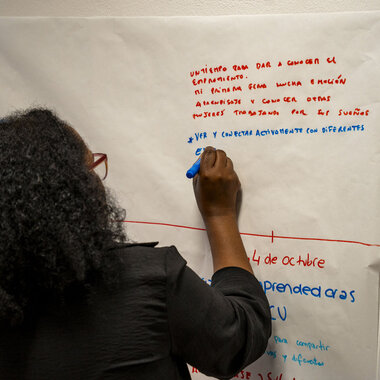 UN TIEMPO PARA DAR A CONOCER EL
EMPRIMIENTO.
MI PRIMARA FERIA MUCHA EMOCIÓN
APRENDISAJE Y CONOCER OTRAS
MUJERES TRABAJANDO POR SUS SUEÑOS
* VER Y CONECTAR ACTIVAMENTE CON DIFERENTES
4 de octubre
mprendedoras
CU
para compartir
y diferentes